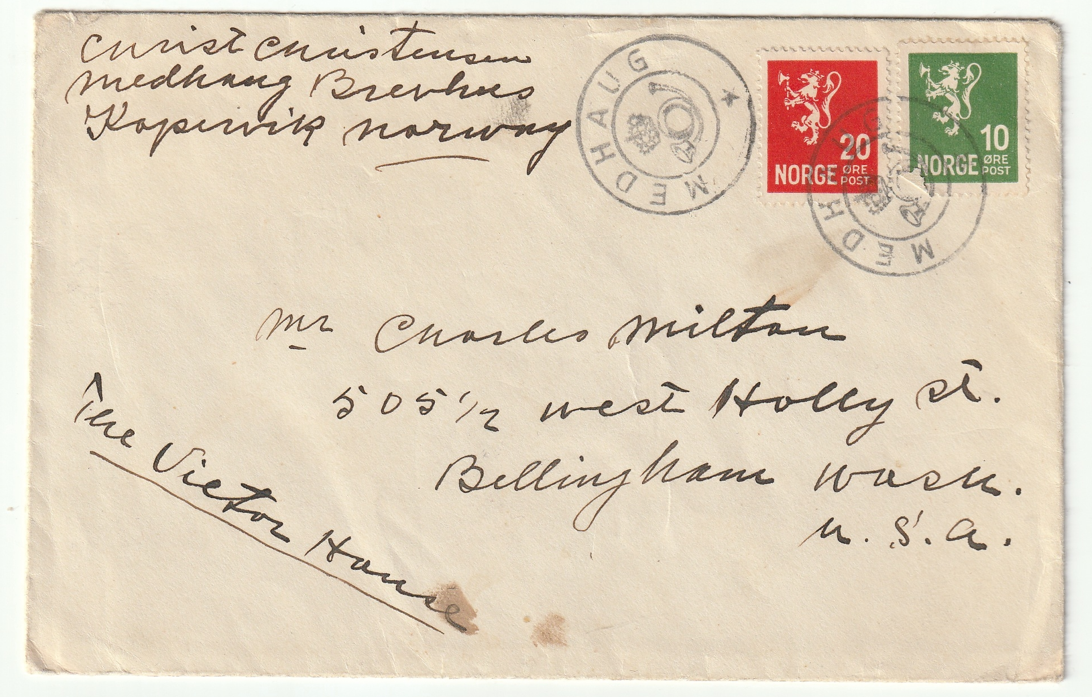 Christ Christensen
medhaug Brevhus
Kopervik norway
MEDHAUG
20
ØRE
NORGE POST
10
ØRE
NORGE POST
MEDHAUG
Mr Charles Milton
505 1/2 west Holly st.
Bellingham wash.
u. S. a.
The Victor House